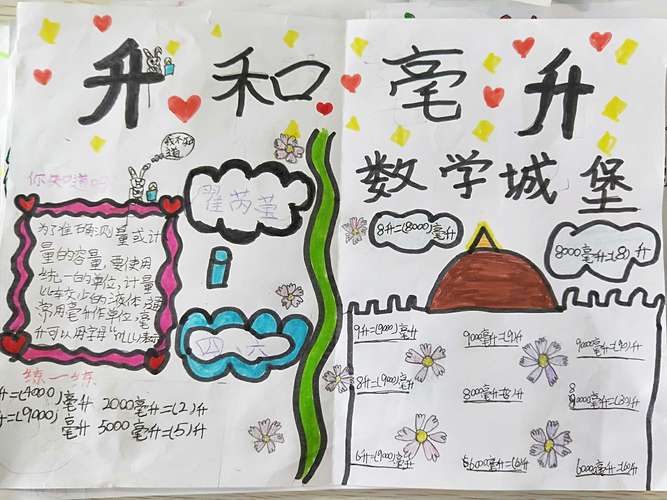 升和毫升
我不知道
你知道吗?
翟芮莹
为了准确测量或计
量的容量,要使用
统一的单位,计量
比较少的液体,通
常用毫升作单位,毫
升可以用字母“mL”表示
四、六
练一练
升=(4000)毫升 2000毫升=(2)升
升=(9000)毫升 5000毫升=(5)升
数学城堡
8升=(8000)毫升
8000毫升=(8)升
9升=(9000)毫升 9000毫升=(9)升 9000毫升=(9)升
8升=(9000)毫升 8000毫升=(8)升
6升=(9000)毫升 6000毫升=(6)升